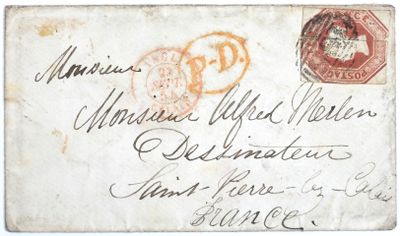 PENCE
POSTAGE
ANGL.
P-D.
Monsieur
Monsieur Alfred Merlen
Dessinateur
Saint-Pierre-les-Calais
France.